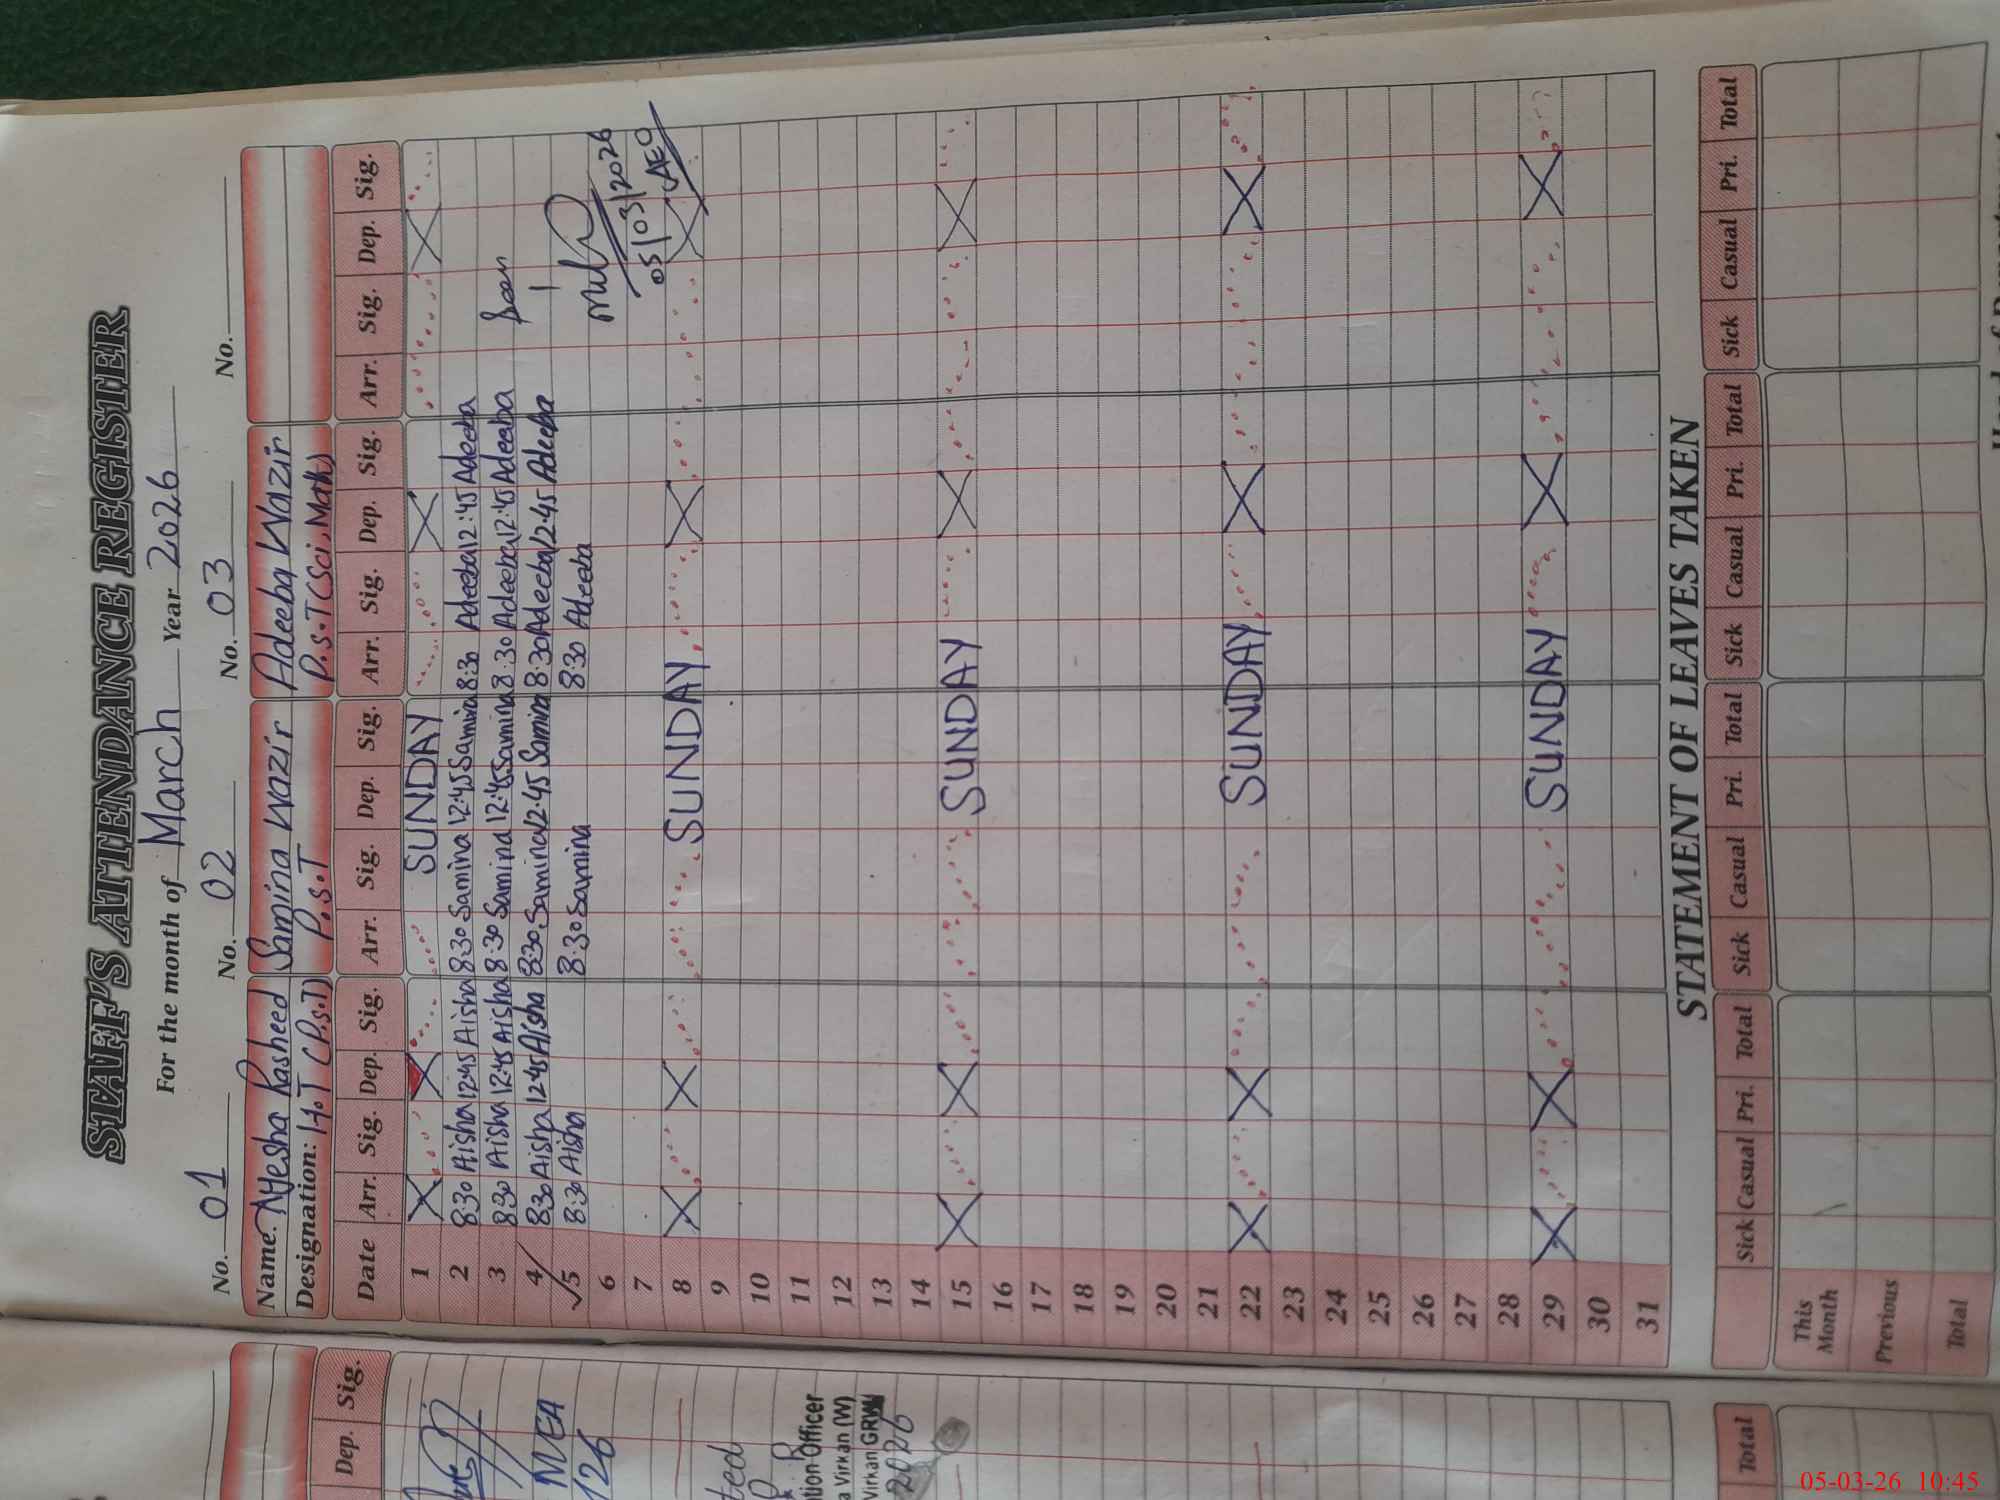 STAFF'S ATTENDANCE REGISTER
For the month of March Year 2026
No. 01 No. 02 No. 03 No.
Name: Ayesha Rasheed Samina Wazir Adeeba Wazir
Designation: H.T (P.S.T) P.S.T P.S.T (Sci, Math)
Date Arr. Sig. Dep. Sig. Arr. Sig. Dep. Sig. Arr. Sig. Dep. Sig. Arr. Sig. Dep. Sig.
1 SUNDAY
2 8:30 Aisha 12:45 Aisha 8:30 Samina 12:45 Samina 8:30 Adeeba 12:45 Adeeba
3 8:30 Aisha 12:45 Aisha 8:30 Samina 12:45 Samina 8:30 Adeeba 12:45 Adeeba Seen
4 8:30 Aisha 12:45 Aisha 8:30 Samina 12:45 Samina 8:30 Adeeba 12:45 Adeeba
5 8:30 Aisha 8:30 Samina 8:30 Adeeba
6
7 05/03/2026
8 SUNDAY AEO
9
10
11
12
13
14
15 SUNDAY
16
17
18
19
20
21
22 SUNDAY
23
24
25
26
27
28
29 SUNDAY
30
31
STATEMENT OF LEAVES TAKEN
Sick Casual Pri. Total Sick Casual Pri. Total Sick Casual Pri. Total Sick Casual Pri. Total
This Month
Previous
Total
Dep. Sig.
MEA
126
ted
tion Officer
a Virkan (W)
Virkan GRW
2026
Total
05-03-26 10:45